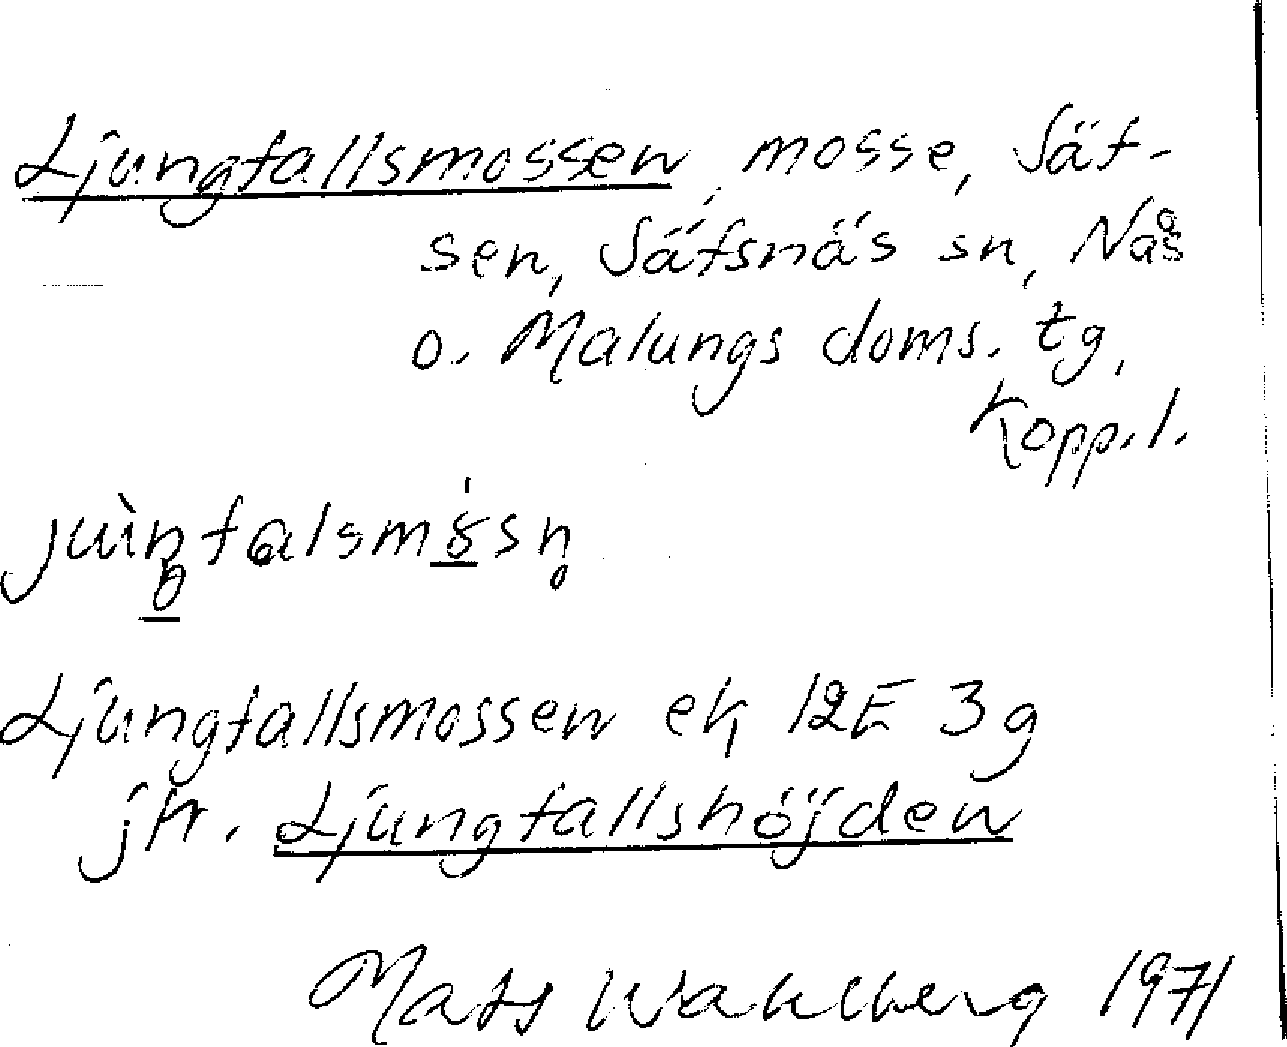 Ljungfallsmossen, mosse, Säf-
sen, Säfsnäs sn, Nås
o. Malungs doms. tg,
Kopp. l.
Ljungfallsmossen ek 12E 3g
jfr. Ljungfallshöjden
Mats Wahlberg 1971